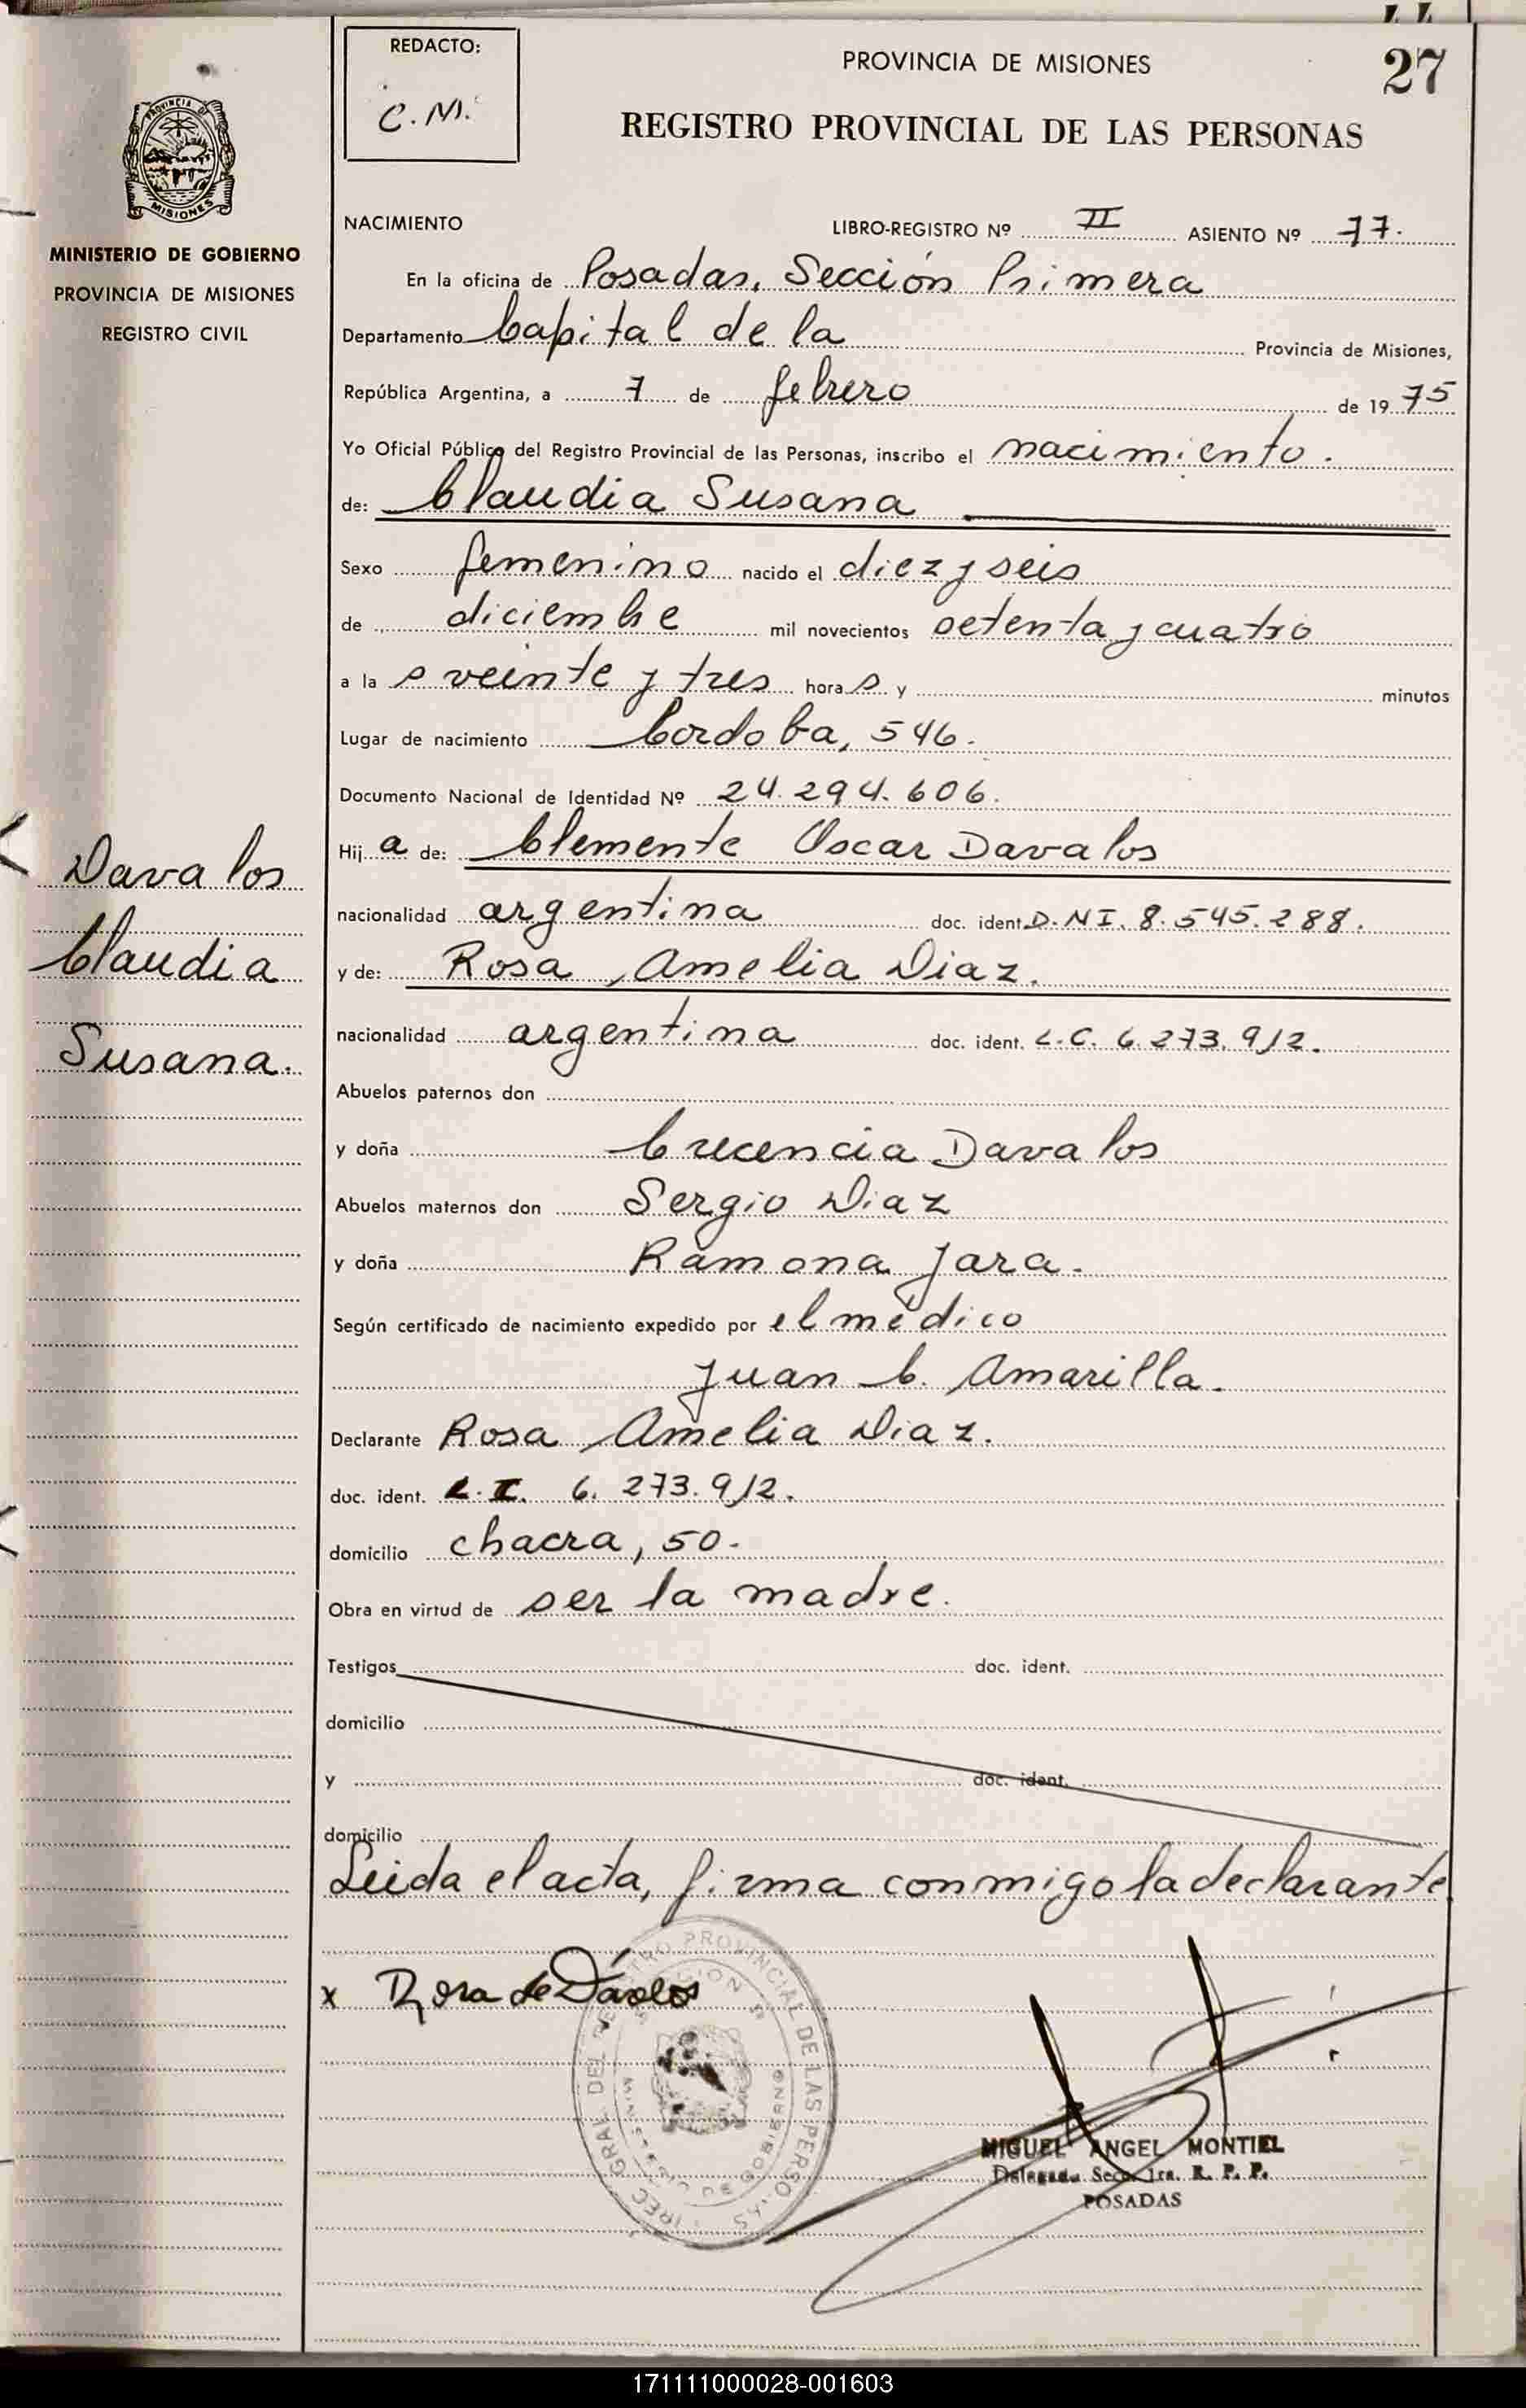 27
REDACTO:
C.M.
PROVINCIA DE MISIONES
REGISTRO PROVINCIAL DE LAS PERSONAS
PROVINCIA DE
MISIONES
MINISTERIO DE GOBIERNO
PROVINCIA DE MISIONES
REGISTRO CIVIL
NACIMIENTO LIBRO-REGISTRO Nº II ASIENTO Nº 77.
En la oficina de Posadas, Sección Primera
Departamento Capital de la Provincia de Misiones,
República Argentina, a 7 de febrero de 1975
Yo Oficial Público del Registro Provincial de las Personas, inscribo el nacimiento.
de: Claudia Susana
Sexo femenino nacido el diez y seis
de diciembre mil novecientos setenta y cuatro
a la s veinte y tres hora s y minutos
Lugar de nacimiento Cordoba, 546.
Documento Nacional de Identidad Nº 24.294.606.
Hij a de: Clemente Oscar Davalos
nacionalidad argentina doc. ident. D.N.I. 8.545.288.
y de: Rosa Amelia Diaz.
nacionalidad argentina doc. ident. L.C. 6.273.912.
Abuelos paternos don
y doña Crecencia Davalos
Abuelos maternos don Sergio Diaz
y doña Ramona Jara.
Según certificado de nacimiento expedido por el médico
Juan C. Amarilla.
Declarante Rosa Amelia Diaz.
doc. ident. 6.273.912.
domicilio chacra, 50.
Obra en virtud de ser la madre.
Testigos doc. ident.
domicilio
y doc. ident.
domicilio
Leida el acta, firma conmigo la declarante
Davalos
Claudia
Susana.
x Rosa de Davalos
PROVINCIAL DE LAS PERSONAS
MIGUEL ANGEL MONTIEL
Delegado Secc. 1ra. R. P. P.
POSADAS
171111000028-001603